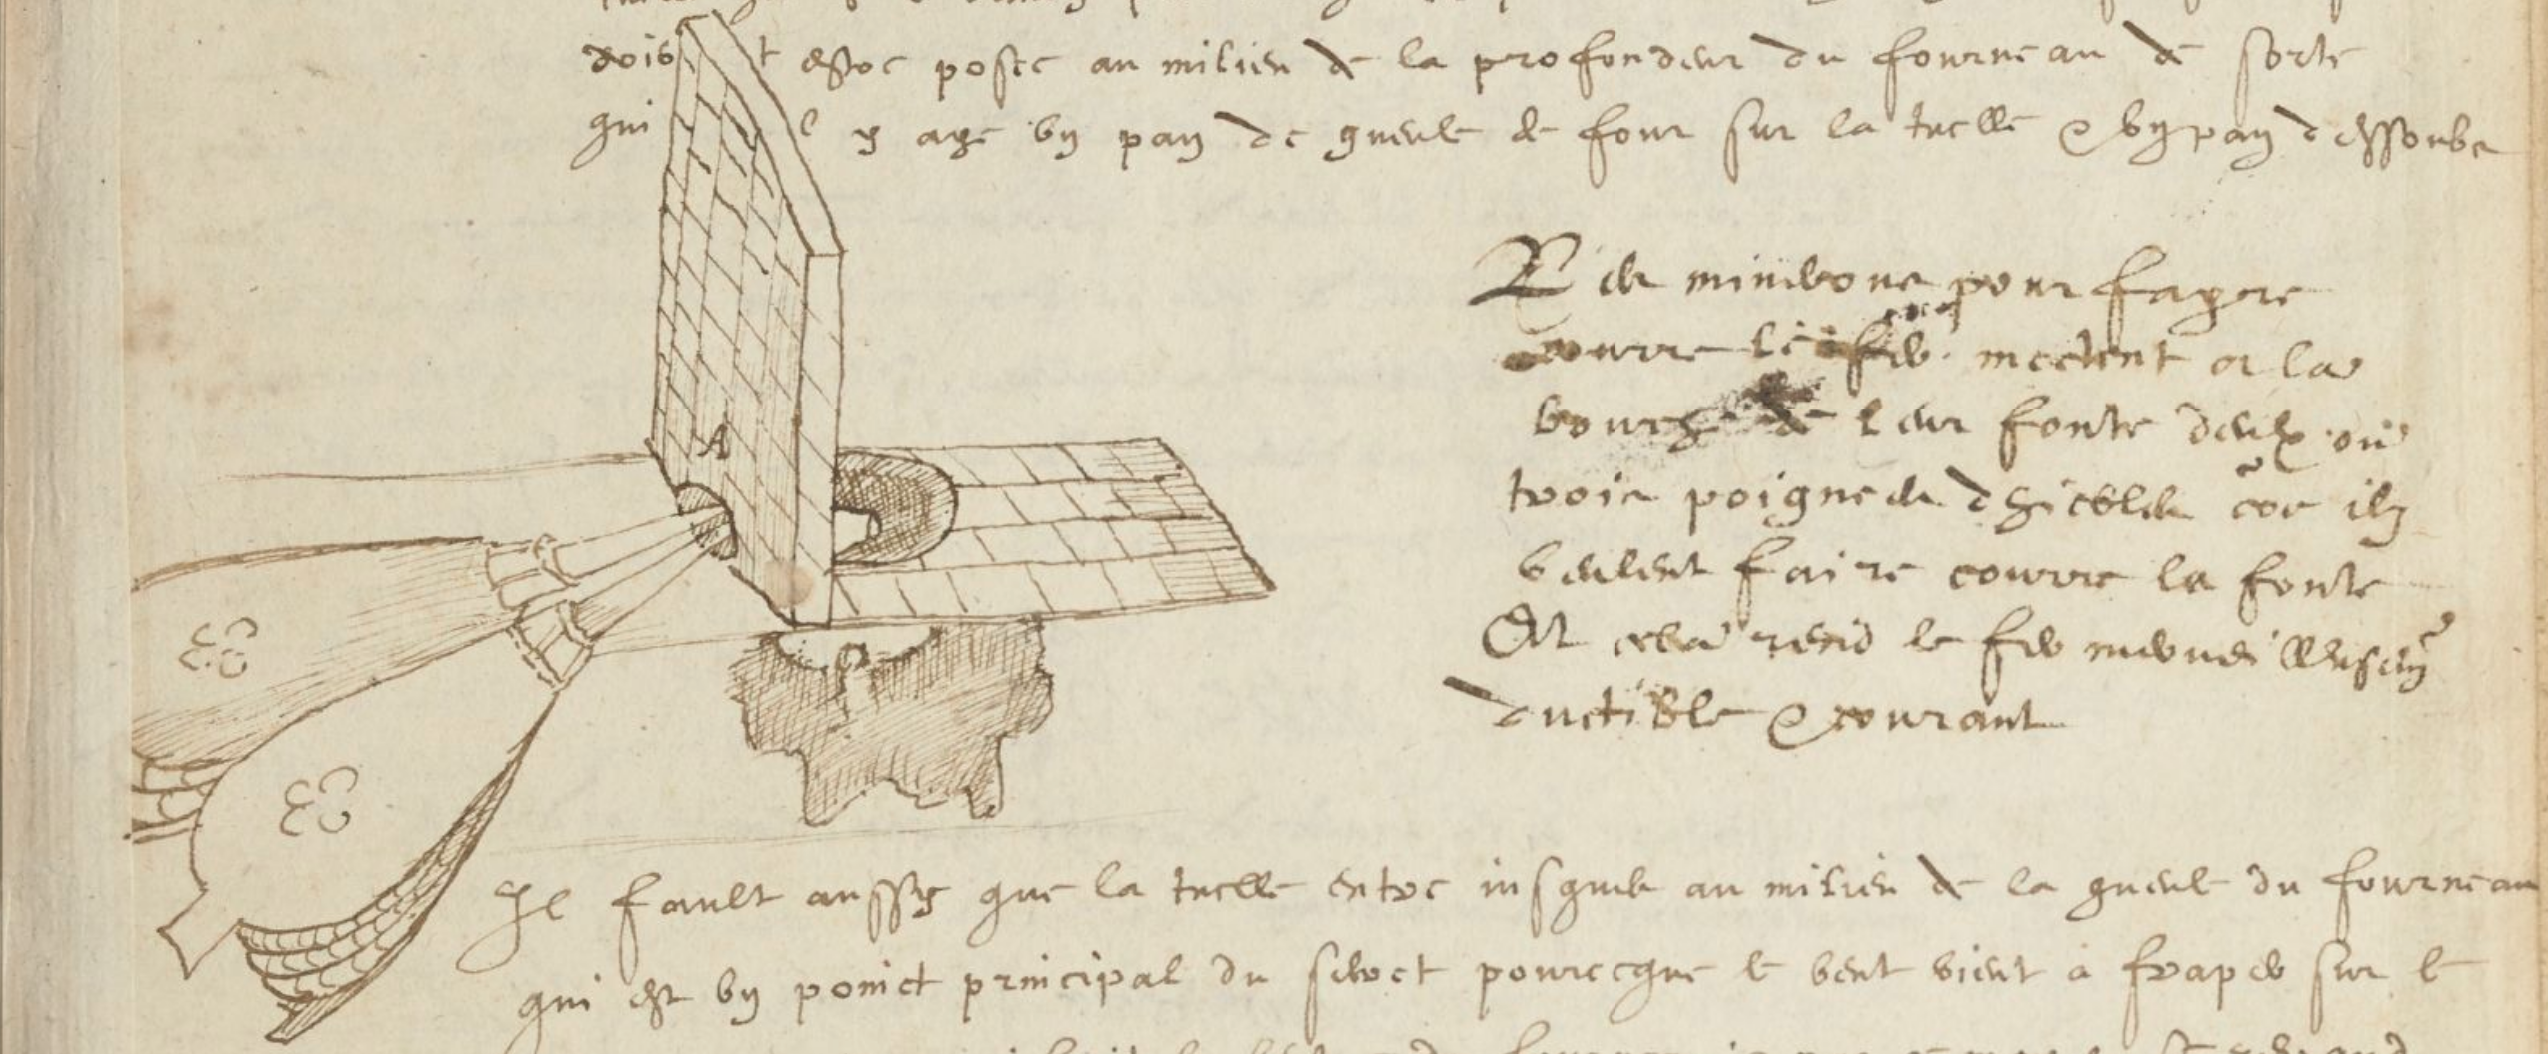 doib t estre posee au milieu de la profondeur du fourneau de sorte
qui l y aye un pan de gueule de four sur la tuelle & un pan dessoubs
A
Les minieres pour fayre
courre le fer mectent a la
de leur fonte deulx ou
trois poignees dhiebles coe ilz
veulent faire courre la fonte
Et cela rend le fer merveilleusemt
ductible & courant
Il fault aussy que la tuelle entre jusques au milieu de la gueule du fourneau
qui est un poinct principal du secret pourceque le vent vient a fraper sur le